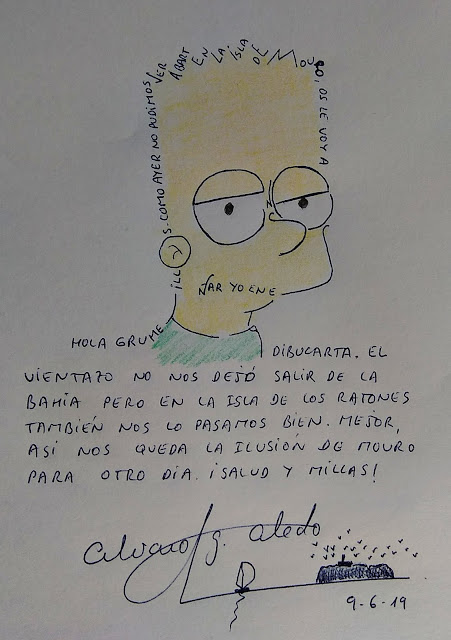 HOLA GRUME
ILL
S. COMO AYER NO PUDIMOS VER
A BART EN LA ISLA DE MOU
RO, OS LE VOY A
N
ÑAR YO EN E
DIBUCARTA. EL
VIENTAZO NO NOS DEJÓ SALIR DE LA
BAHÍA PERO EN LA ISLA DE LOS RATONES
TAMBIÉN NOS LO PASAMOS BIEN. MEJOR,
ASÍ NOS QUEDA LA ILUSIÓN DE MOURO
PARA OTRO DÍA. ¡SALUD Y MILLAS!
Alvaro g. Aledo
9-6-19